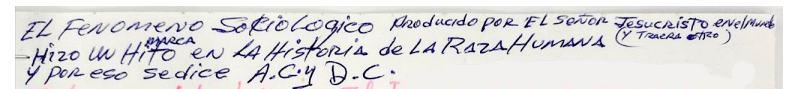 EL FENOMENO SOCIOLOGICO PRODUCIDO POR EL SEÑOR JESUCRISTO en el Mundo
(Y TRAERA OTRO)
- HIZO UN HITO MARCA EN LA HISTORIA de LA RAZA HUMANA
Y POR ESO se dice A.C. y D.C.